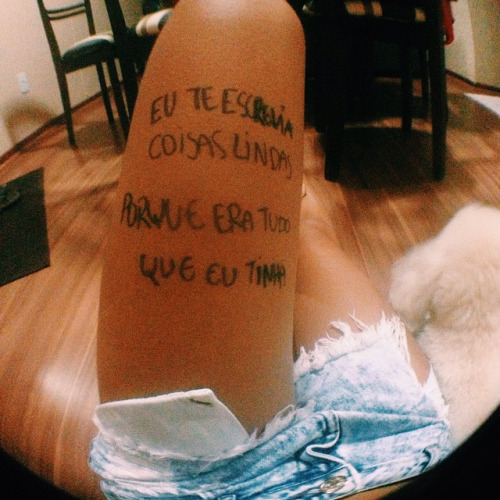 EU TE ESCREVIA
COISAS LINDAS
PORQUE ERA TUDO
QUE EU TINHA